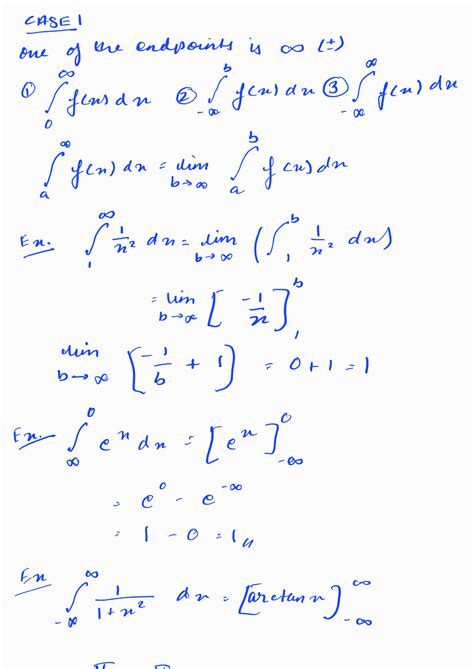 CASE 1
one of the endpoints is ∞ (±)
① ∫₀^∞ f(x) dx ② ∫_{-∞}^b f(x) dx ③ ∫_{-∞}^∞ f(x) dx
∫_a^∞ f(x) dx = lim_{b→∞} ∫_a^b f(x) dx
Ex. ∫₁^∞ 1/x² dx = lim_{b→∞} (∫₁^b 1/x² dx)
= lim_{b→∞} [-1/x]₁^b
lim_{b→∞} [-1/b + 1] = 0 + 1 = 1
Ex. ∫_∞^0 e^x dx = [e^x]_{-∞}^0
= e^0 - e^{-∞}
= 1 - 0 = 1
Ex ∫_{-∞}^∞ 1/(1+x²) dx = [arctan x]_{-∞}^∞